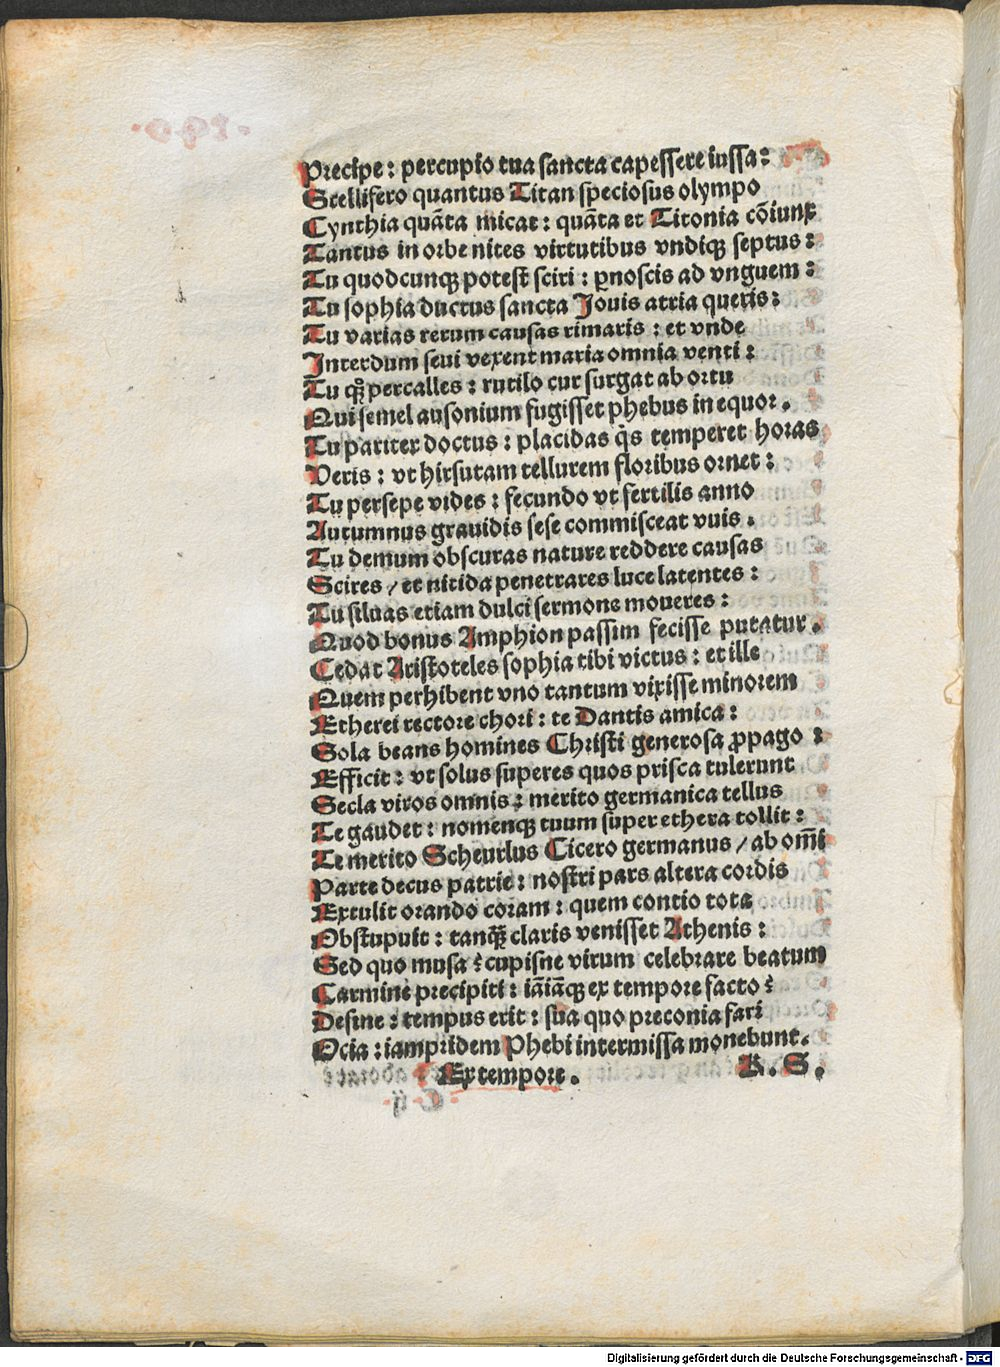 Precipe : percupio tua sancta capessere iussa :
Stellifero quantus Titan speciosus olympo
Cynthia quāta micat : quāta et Titonia cōiunx
Tantus in orbe nites virtutibus vndiqꝫ septus :
Tu quodcunqꝫ potest sciri : ꝑnoscis ad vnguem :
Tu sophia ductus sancta Jouis atria queris :
Tu varias rerum causas rimaris : et vnde
Interdum seui vexent maria omnia venti :
Tu qꝫ̄ percalles : rutilo cur surgat ab ortu
Qui semel ausonium fugisset phebus in equor .
Tu pariter doctus : placidas q̇s temperet horas
Veris : vt hirsutam tellurem floribus ornet :
Tu persepe vides : fecundo vt fertilis anno
Autumnus grauidis sese commisceat vuis .
Tu demum obscuras nature reddere causas
Scires / et nitida penetrares luce latentes :
Tu siluas etiam dulci sermone moueres :
Quod bonus Amphion passim fecisse putatur .
Cedat Aristoteles sophia tibi victus : et ille
Quem perhibent vno tantum vixisse minorem
Etherei rectore chori : te Dantis amica :
Sola beans homines Christi generosa ꝓpago :
Efficit : vt solus superes quos prisca tulerunt
Secla viros omnis : merito germanica tellus
Te gaudet : nomenqꝫ tuum super ethera tollit :
Te merito Scheurlus Cicero germanus / ab om̄i
Parte decus patrie : nostri pars altera cordis
Extulit orando coram : quem contio tota
Obstupuit : tanqꝫ̄ claris venisset Athenis :
Sed quo musa ? cupisne virum celebrare beatum
Carmine precipiti : iāiāqꝫ ex tempore facto ?
Desine : tempus erit : sua quo preconia fari
Ocia : iampridem Phebi intermissa monebunt .
Ex tempore . K . S .
Digitalisierung gefördert durch die Deutsche Forschungsgemeinschaft - DFG